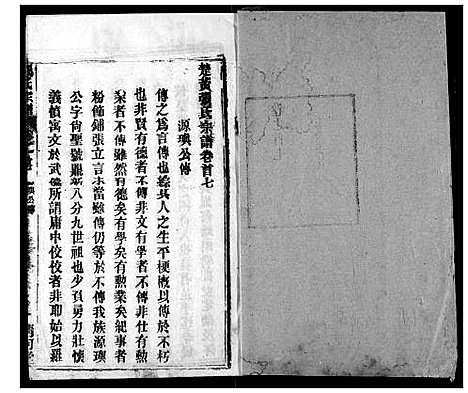 楚黃張氏宗譜卷首七
源璵公傳
傳之為言傳也綜其人之生平梗概以傳於不朽
也非賢有德者不傳非文有學者不傳非仕有勲
業者不傳雖然有德矣有學矣有勲業矣紀事者
粉飾鋪張立言未當雖傳仍等於不傳我族源璵
公字尚聖號覲新八分九世祖也少負勇力壯懷
義憤寓文於武儒所謂庸中佼佼者非耶始以羅
氏宗
清河堂